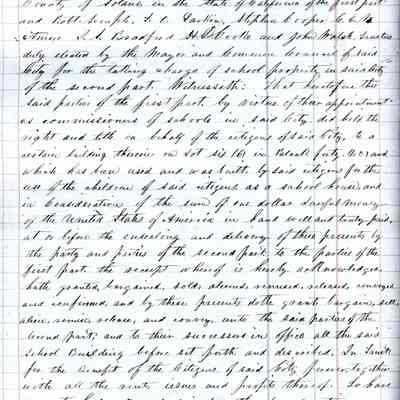 County of Solano in the State of California of the first part
and Robt Semple. F. C. Stephen Cooper
Bradford and John Walsh Trustees
duly elected by the Mayor and Common Council of said
City for the taking charge of school property in said City
of the second part. Witnesseth: That heretofore the
said parties of the first part, by virtue of their appointment
as commissioners of schools in said City did hold the
right and title on behalf of the citizens of said City, to a
certain building thereon on Lot six (6) in Block forty and
which has been used and was built by said citizens for the
use of the children of said citizens as a school house, and
in Consideration of the sum of one dollar lawful money
of the United States of America in hand well and truly paid
at or before the ensealing and delivery of these presents by
the party and parties of the second part, to the parties of the
first part, the receipt whereof is hereby acknowledged
hath granted, bargained, sold, aliened, remised, released, conveyed
and confirmed, and by these presents doth grant, bargain, sell,
alien, remise, release, and convey, unto the said parties of the
second part, and to their successors in office all the said
School Building before set forth and described. In Trust
for the Benefit of the Citizens of said City forever, together
with all the rents issues and profits thereof. To have